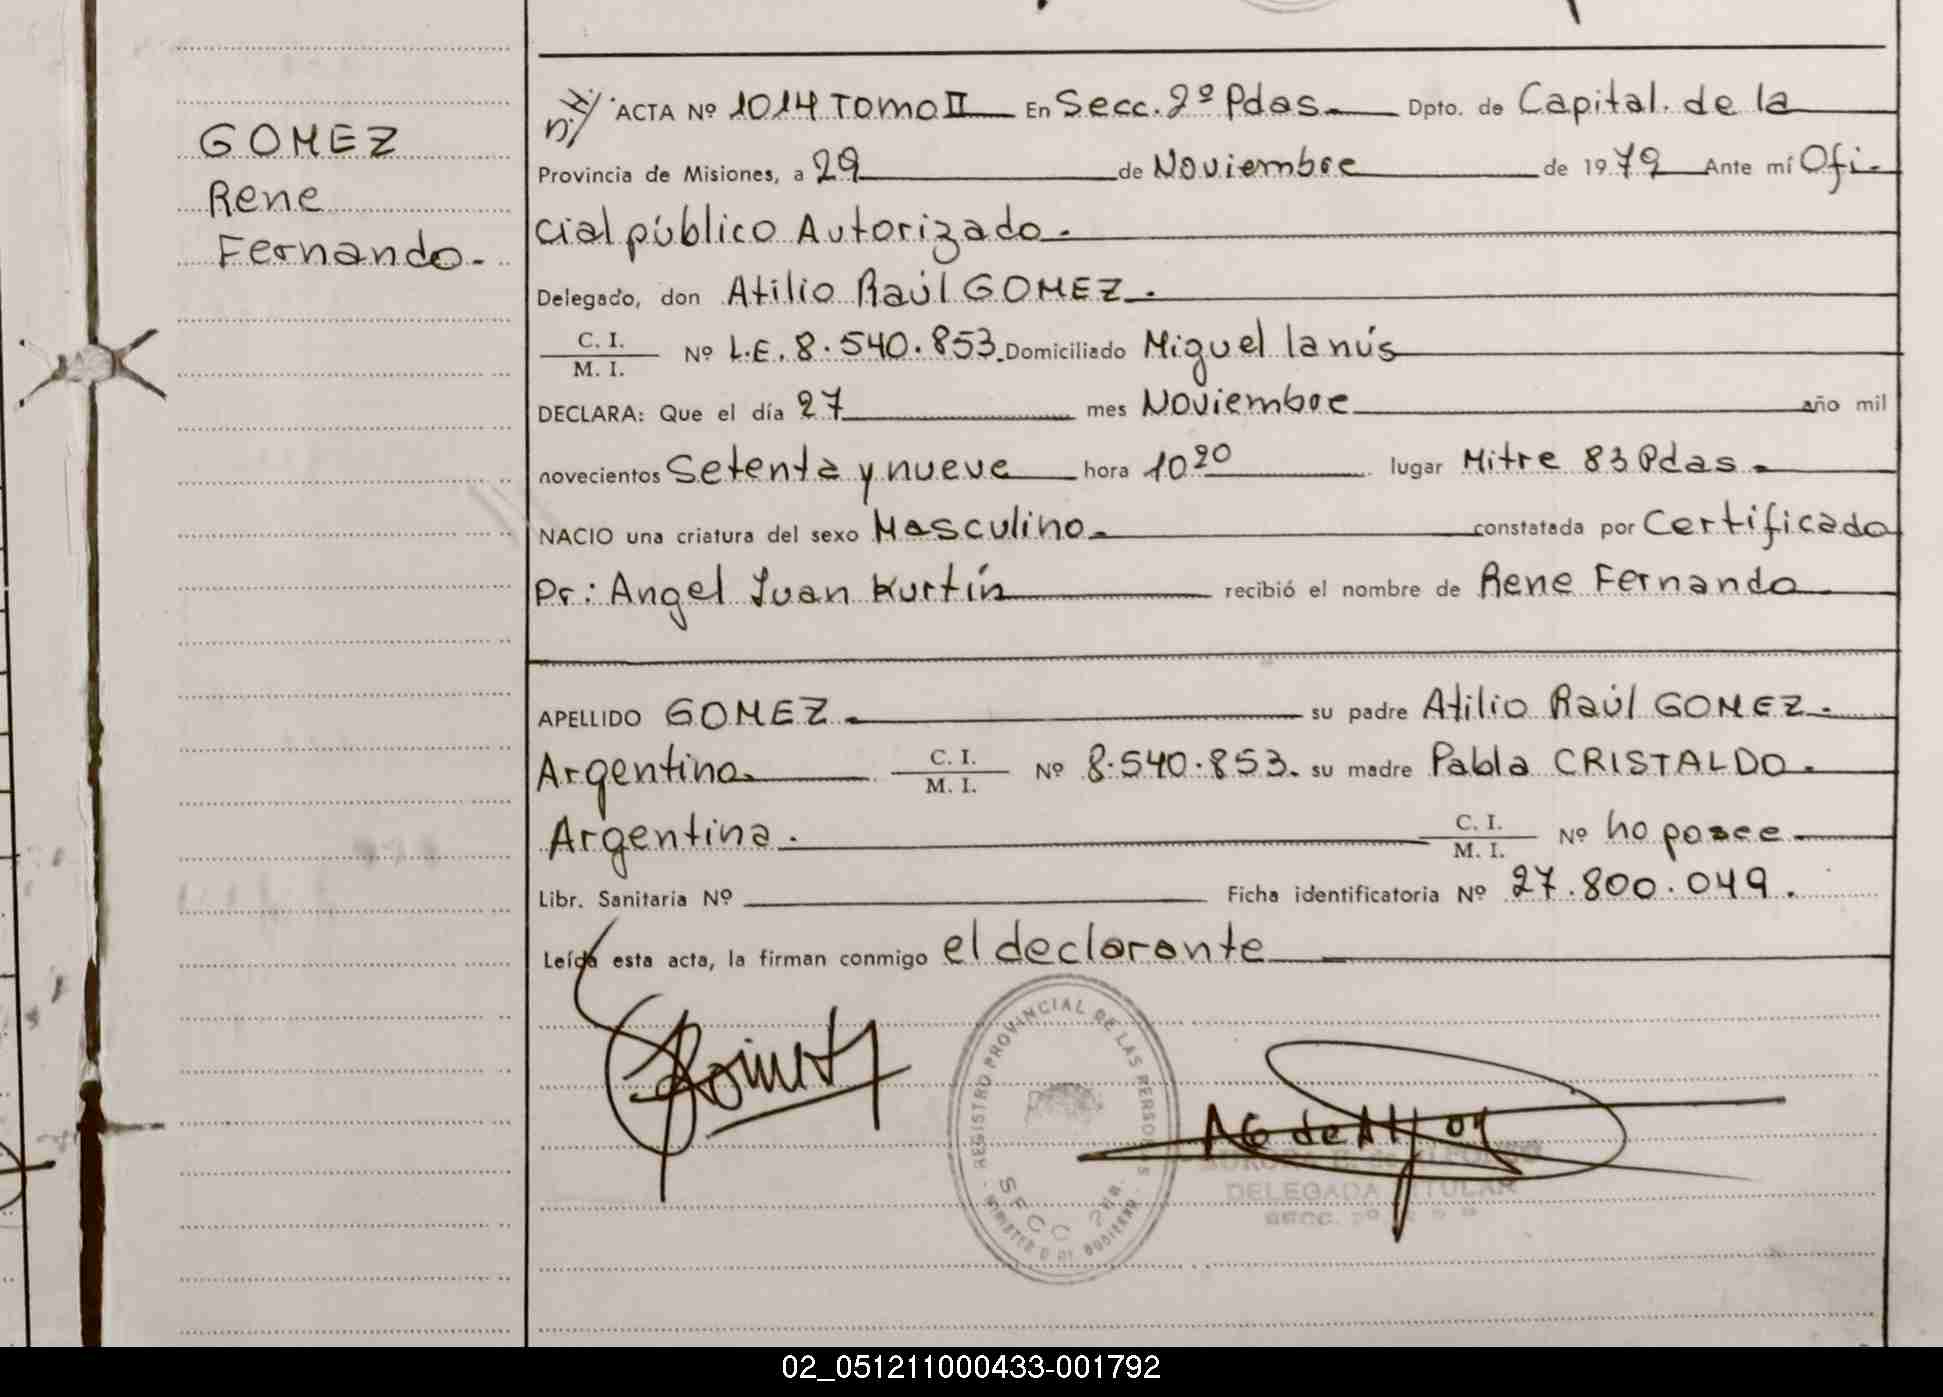 GOMEZ
Rene
Fernando.-
ACTA Nº 1014 Tomo II En Secc. 2º Pdas. Dpto. de Capital. de la
Provincia de Misiones, a 29 de Noviembre de 1979 Ante mí Ofi-
cial público Autorizado.
Delegado, don Atilio Raúl GOMEZ.
C. I.
M. I. Nº L.E. 8.540.853. Domiciliado Miguel lanús
DECLARA: Que el día 27 mes Noviembre año mil
novecientos Setenta y nueve hora 10 20 lugar Mitre 83 Pdas.
NACIO una criatura del sexo Masculino. constatada por Certificado
Dr: Angel Juan Kurtín recibió el nombre de Rene Fernando
APELLIDO GOMEZ. su padre Atilio Raúl GOMEZ.
Argentino. C. I.
M. I. Nº 8.540.853. su madre Pabla CRISTALDO.
Argentina. C. I.
M. I. Nº no posee
Libr. Sanitaria Nº Ficha identificatoria Nº 27.800.049.
Leída esta acta, la firman conmigo el declarante
REGISTRO PROVINCIAL DE LAS PERSONAS
SECC 2da.
MINISTERIO DE GOBIERNO
DELEGADA TITULAR
SECC.
02_051211000433-001792